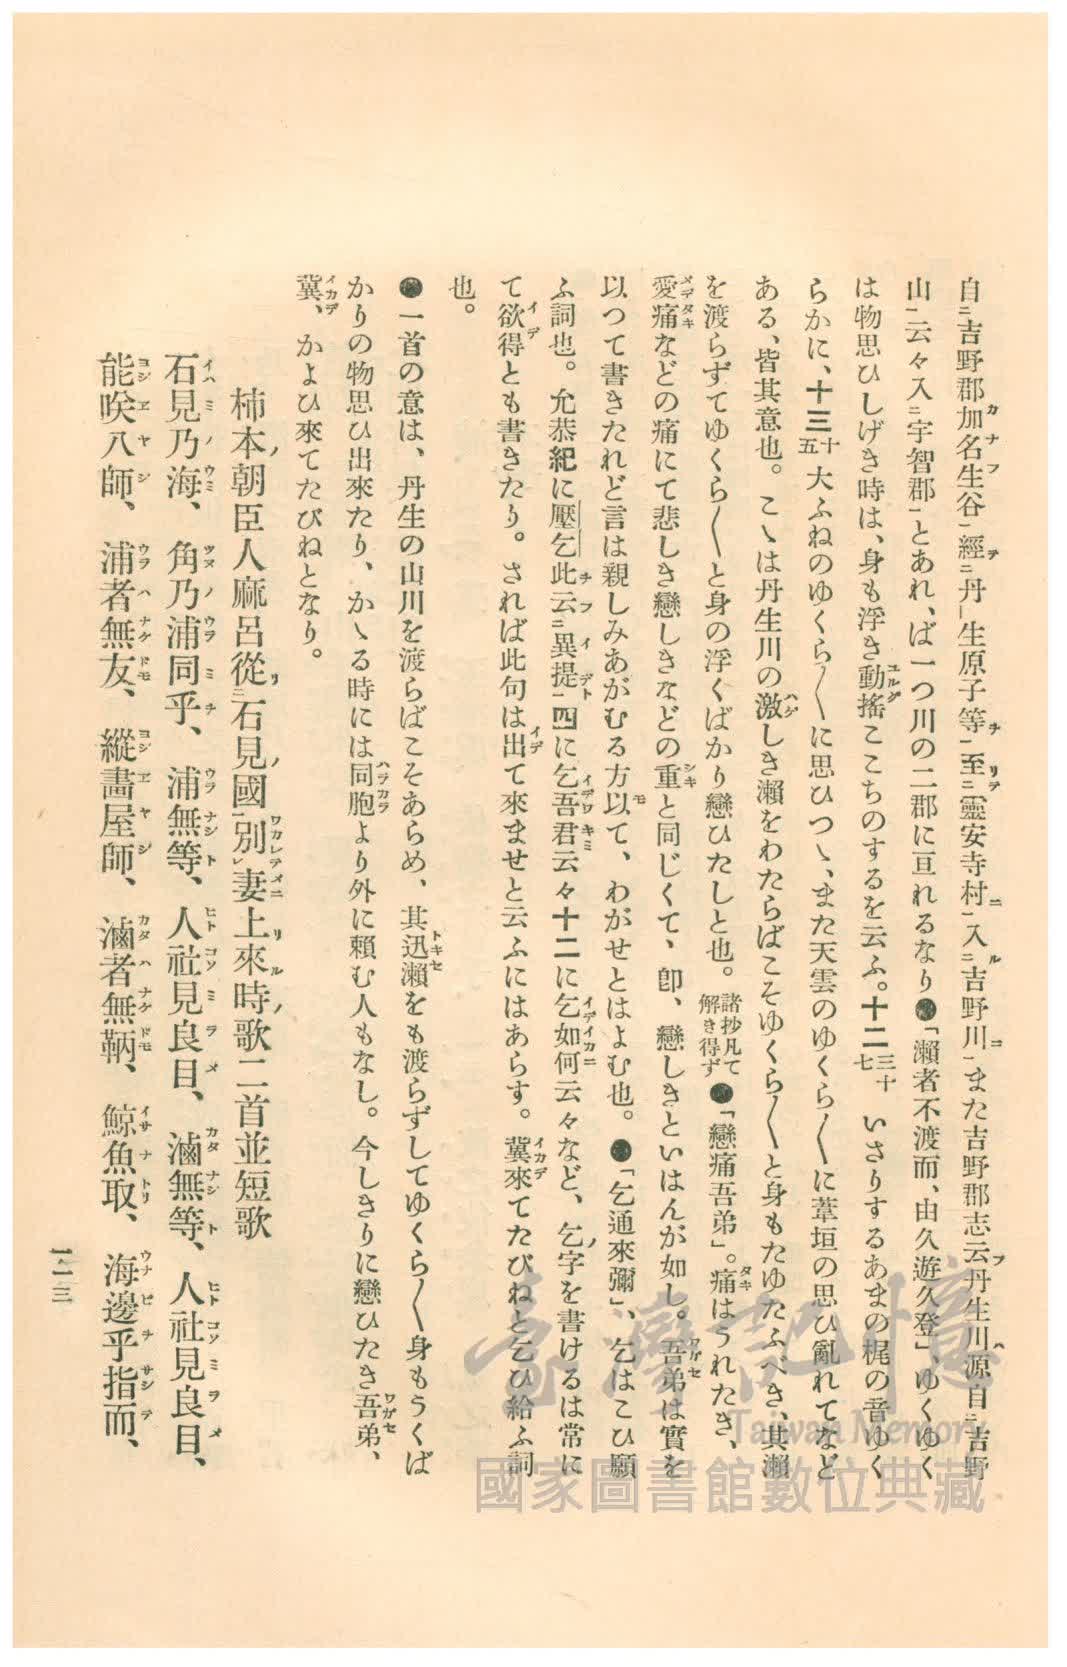 自ニ吉野郡加名生谷一經ニ丹一生原子等一至ニ靈安寺村一入ニ吉野川一また吉野郡志云丹生川源自ニ吉野
山一云々入ニ宇智郡一とあれ、ば一つ川の二郡に亘れるなり●「瀬者不渡而、由久遊久登」、ゆくゆく
は物思ひしげき時は、身も浮き動搖ここちのするを云ふ。十二三十七 いさりするあまの梶の音ゆく
らかに、十三十五大ふねのゆくら〱に思ひつゝ、また天雲のゆくら〱に葦垣の思ひ亂れてなど
ある、皆其意也。こゝは丹生川の激しき瀬をわたらばこそゆくら〱と身もたゆたふべき、其瀬
を渡らずてゆくら〱と身の浮くばかり戀ひたしと也。諸抄凡て解き得ず●「戀痛吾弟」。痛はうれたき、
愛痛などの痛にて悲しき戀しきなどの重と同じくて、卽、戀しきといはんが如し。吾弟は實を
以つて書きたれど言は親しみあがむる方以て、わがせとはよむ也。●「乞通來彌」、乞はこひ願
ふ詞也。允恭紀に壓乞此云ニ異提一四に乞吾君云々十二に乞如何云々など、乞ノ字を書けるは常に
て欲得とも書きたり。されば此句は出て來ませと云ふにはあらす。冀來てたびねと乞ひ給ふ詞
也。
●一首の意は、丹生の山川を渡らばこそあらめ、其迅瀬をも渡らずしてゆくら〱身もうくば
かりの物思ひ出來たり、かゝる時には同胞より外に頼む人もなし。今しきりに戀ひたき吾弟、
冀、かよひ來てたびねとなり。
柿本ノ朝臣人麻呂從ニ石見ノ國一別レ妻上來時ノ歌二首並短歌
石見乃海、角乃浦同乎、浦無等、人社見良目、滷無等、人社見良目、
能咲八師、浦者無友、縱畫屋師、滷者無鞆、鯨魚取、海邊乎指而、
一二三
臺灣記憶
Taiwan Memory
國家圖書館數位典藏